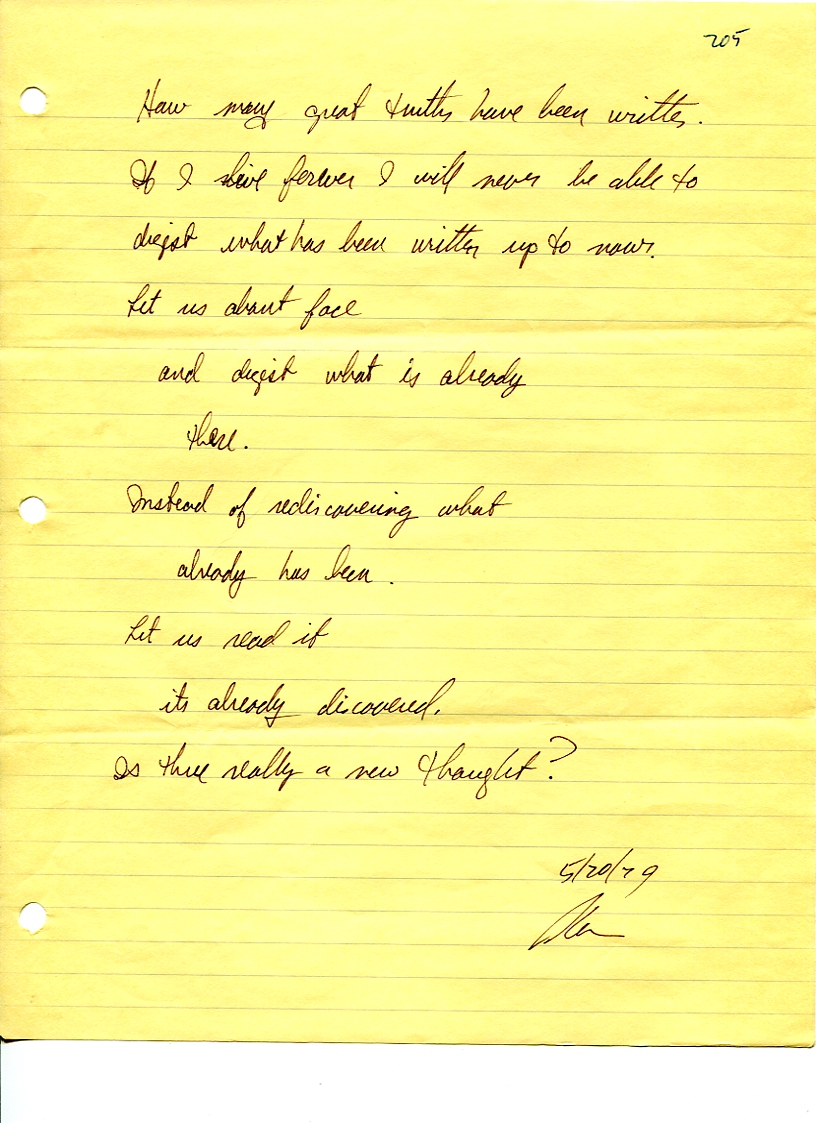 205
How many great truths have been written.
If I live forever I will never be able to
digest what has been written up to now.
Let us about face
and digest what is already
there.
Instead of rediscovering what
already has been.
Let us read it
its already discovered.
Is there really a new thought?
5/20/79